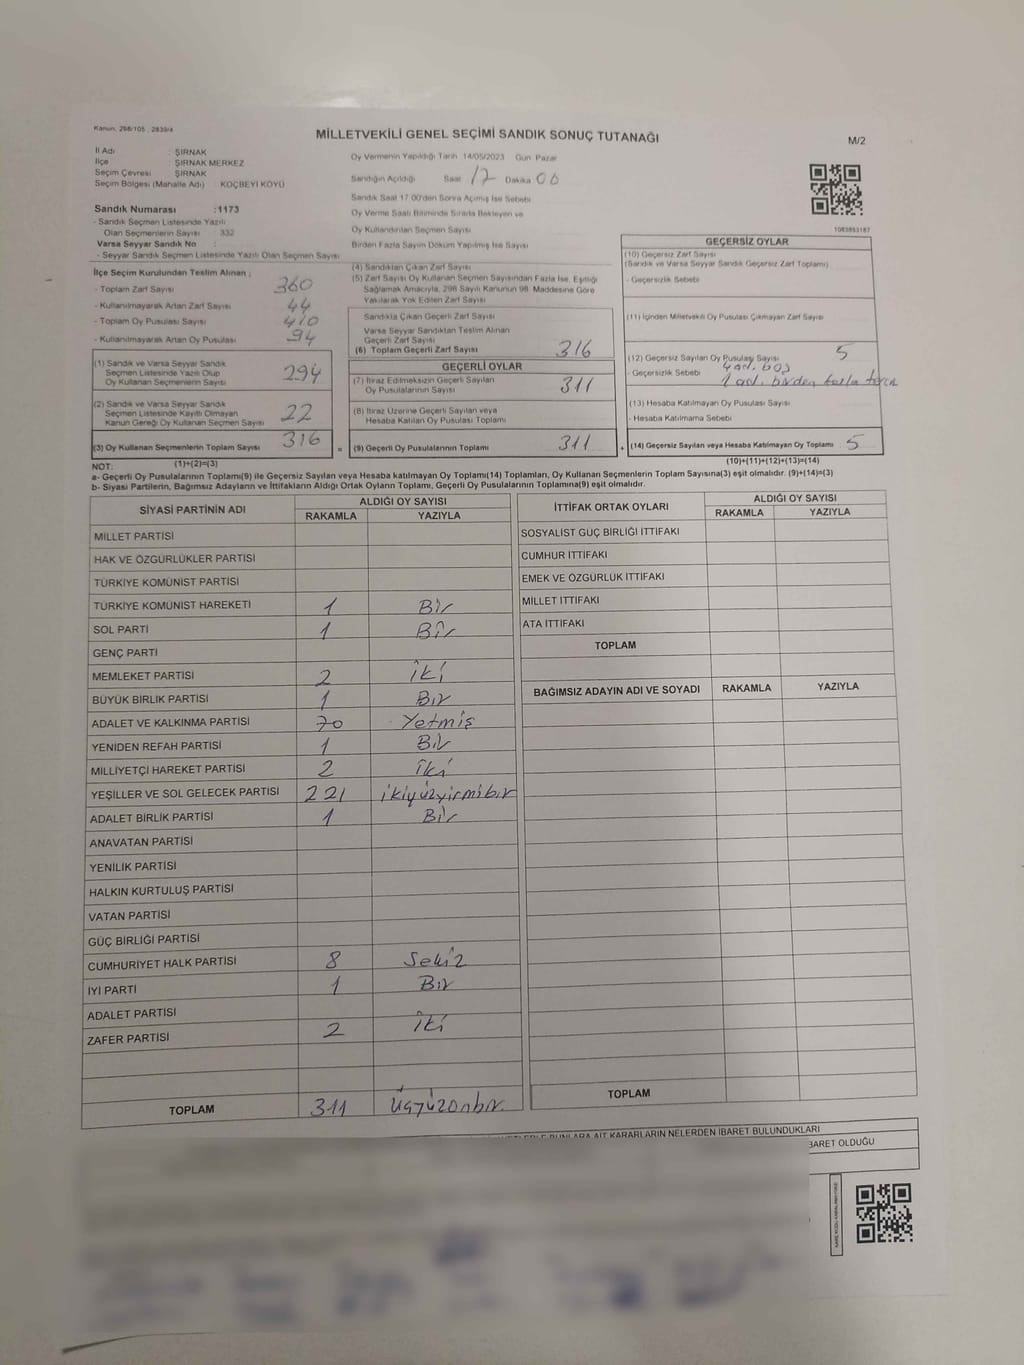 Kanun, 298/105 , 2839/4
MİLLETVEKİLİ GENEL SEÇİMİ SANDIK SONUÇ TUTANAĞI
M/2
İl Adı : ŞIRNAK
İlçe : ŞIRNAK MERKEZ
Seçim Çevresi : ŞIRNAK
Seçim Bölgesi (Mahalle Adı) : KOÇBEYİ KÖYÜ
Oy Vermenin Yapıldığı Tarih 14/05/2023 Gün Pazar
Sandığın Açıldığı Saat 17 Dakika 06
Sandık Saat 17.00'den Sonra Açılmış İse Sebebi
Oy Verme Saati Bitiminde Sırada Bekleyen ve
Oy Kullandırılan Seçmen Sayısı
Birden Fazla Sayım Döküm Yapılmış İse Sayısı
1083853187
Sandık Numarası :1173
- Sandık Seçmen Listesinde Yazılı
Olan Seçmenlerin Sayısı 332
Varsa Seyyar Sandık No :
- Seyyar Sandık Seçmen Listesinde Yazılı Olan Seçmen Sayısı
İlçe Seçim Kurulundan Teslim Alınan ;
- Toplam Zarf Sayısı 360
- Kullanılmayarak Artan Zarf Sayısı 44
- Toplam Oy Pusulası Sayısı 410
- Kullanılmayarak Artan Oy Pusulası 94
(1) Sandık ve Varsa Seyyar Sandık
Seçmen Listesinde Yazılı Olup
Oy Kullanan Seçmenlerin Sayısı 294
(2) Sandık ve Varsa Seyyar Sandık
Seçmen Listesinde Kayıtlı Olmayan
Kanun Gereği Oy Kullanan Seçmen Sayısı 22
(3) Oy Kullanan Seçmenlerin Toplam Sayısı 316
(1)+(2)=(3)
(4) Sandıktan Çıkan Zarf Sayısı
(5) Zarf Sayısı Oy Kullanan Seçmen Sayısından Fazla İse, Eşitliği
Sağlamak Amacıyla, 298 Sayılı Kanunun 98. Maddesine Göre
Yakılarak Yok Edilen Zarf Sayısı
Sandıkta Çıkan Geçerli Zarf Sayısı
Varsa Seyyar Sandıktan Teslim Alınan
Geçerli Zarf Sayısı
(6) Toplam Geçerli Zarf Sayısı 316
GEÇERLİ OYLAR
(7) İtiraz Edilmeksizin Geçerli Sayılan
Oy Pusulalarının Sayısı 311
(8) İtiraz Üzerine Geçerli Sayılan veya
Hesaba Katılan Oy Pusulası Toplamı
= (9) Geçerli Oy Pusulalarının Toplamı 311
GEÇERSİZ OYLAR
(10) Geçersiz Zarf Sayısı
(Sandık ve Varsa Seyyar Sandık Geçersiz Zarf Toplamı)
- Geçersizlik Sebebi
(11) İçinden Milletvekili Oy Pusulası Çıkmayan Zarf Sayısı
(12) Geçersiz Sayılan Oy Pusulası Sayısı 5
- Geçersizlik Sebebi 4 ad. boş
1 ad. birden fazla tercih
(13) Hesaba Katılmayan Oy Pusulası Sayısı
- Hesaba Katılmama Sebebi
+ (14) Geçersiz Sayılan veya Hesaba Katılmayan Oy Toplamı 5
(10)+(11)+(12)+(13)=(14)
NOT:
a- Geçerli Oy Pusulalarının Toplamı(9) ile Geçersiz Sayılan veya Hesaba katılmayan Oy Toplamı(14) Toplamları, Oy Kullanan Seçmenlerin Toplam Sayısına(3) eşit olmalıdır. (9)+(14)=(3)
b- Siyasi Partilerin, Bağımsız Adayların ve İttifakların Aldığı Ortak Oyların Toplamı, Geçerli Oy Pusulalarının Toplamına(9) eşit olmalıdır.
SİYASİ PARTİNİN ADI ALDIĞI OY SAYISI
RAKAMLA YAZIYLA
MİLLET PARTİSİ
HAK VE ÖZGÜRLÜKLER PARTİSİ
TÜRKİYE KOMÜNİST PARTİSİ
TÜRKİYE KOMÜNİST HAREKETİ 1 Bir
SOL PARTİ 1 Bir
GENÇ PARTİ
MEMLEKET PARTİSİ 2 İki
BÜYÜK BİRLİK PARTİSİ 1 Bir
ADALET VE KALKINMA PARTİSİ 70 Yetmiş
YENİDEN REFAH PARTİSİ 1 Bir
MİLLİYETÇİ HAREKET PARTİSİ 2 İki
YEŞİLLER VE SOL GELECEK PARTİSİ 221 ikiyüzyirmibir
ADALET BİRLİK PARTİSİ 1 Bir
ANAVATAN PARTİSİ
YENİLİK PARTİSİ
HALKIN KURTULUŞ PARTİSİ
VATAN PARTİSİ
GÜÇ BİRLİĞİ PARTİSİ
CUMHURİYET HALK PARTİSİ 8 Sekiz
İYİ PARTİ 1 Bir
ADALET PARTİSİ
ZAFER PARTİSİ 2 İki
TOPLAM 311 Üçyüzonbir
İTTİFAK ORTAK OYLARI ALDIĞI OY SAYISI
RAKAMLA YAZIYLA
SOSYALİST GÜÇ BİRLİĞİ İTTİFAKI
CUMHUR İTTİFAKI
EMEK VE ÖZGÜRLÜK İTTİFAKI
MİLLET İTTİFAKI
ATA İTTİFAKI
TOPLAM
BAĞIMSIZ ADAYIN ADI VE SOYADI RAKAMLA YAZIYLA
TOPLAM
BUNLARA AİT KARARLARIN NELERDEN İBARET BULUNDUKLARI
İBARET OLDUĞU